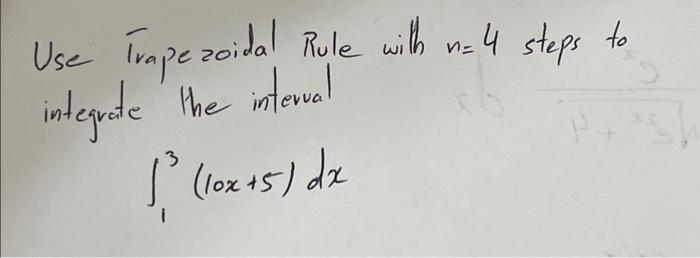 Use Trapezoidal Rule with n=4 steps to
integrate the interval
∫₁³ (10x+5) dx